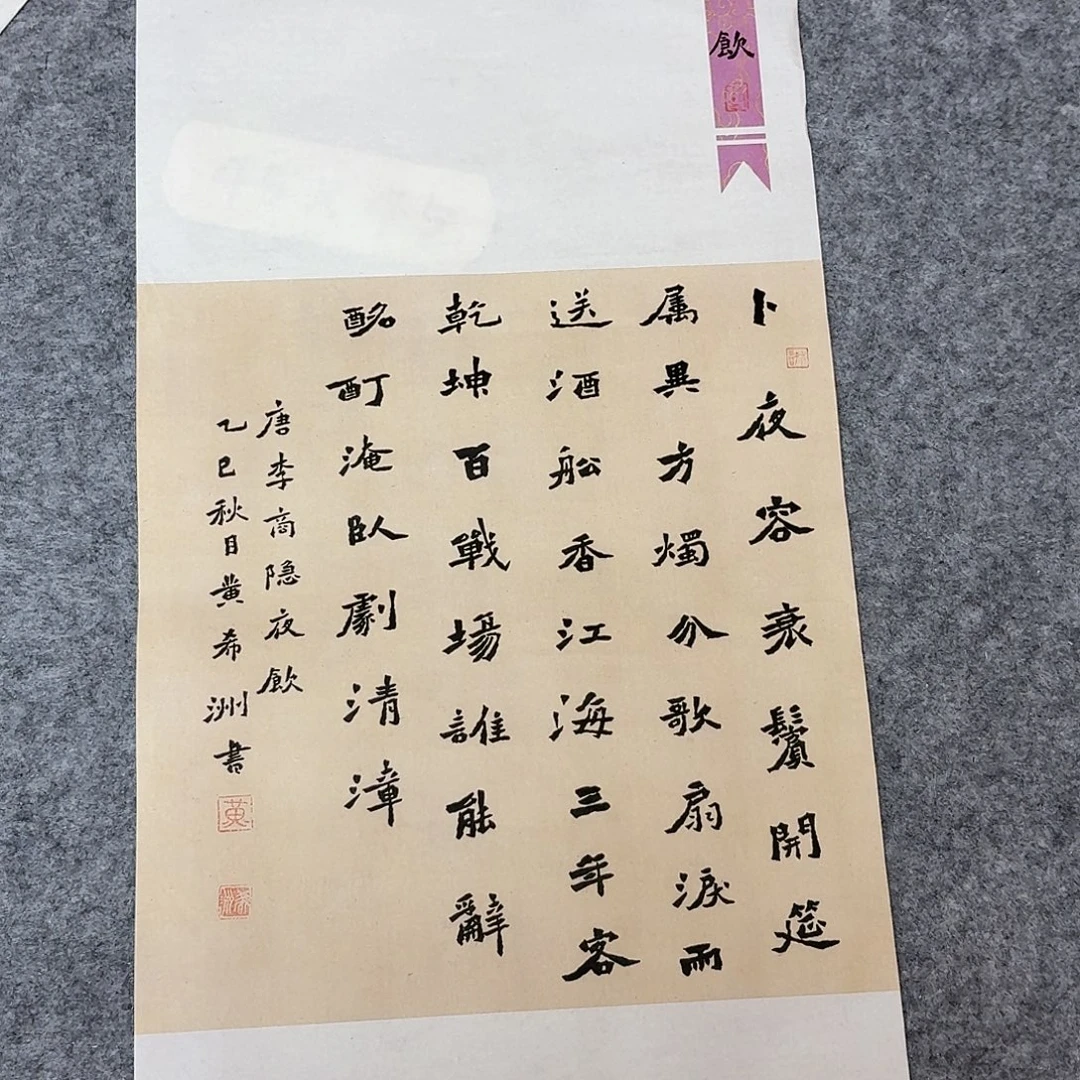 飲
卜夜容衰鬢開筵
属異方燭分歌扇淚雨
送酒船香江海三年客
乾坤百戰場誰能辭
酩酊淹臥劇清漳
唐李商隐夜飲
乙巳秋月黄希洲書
黄